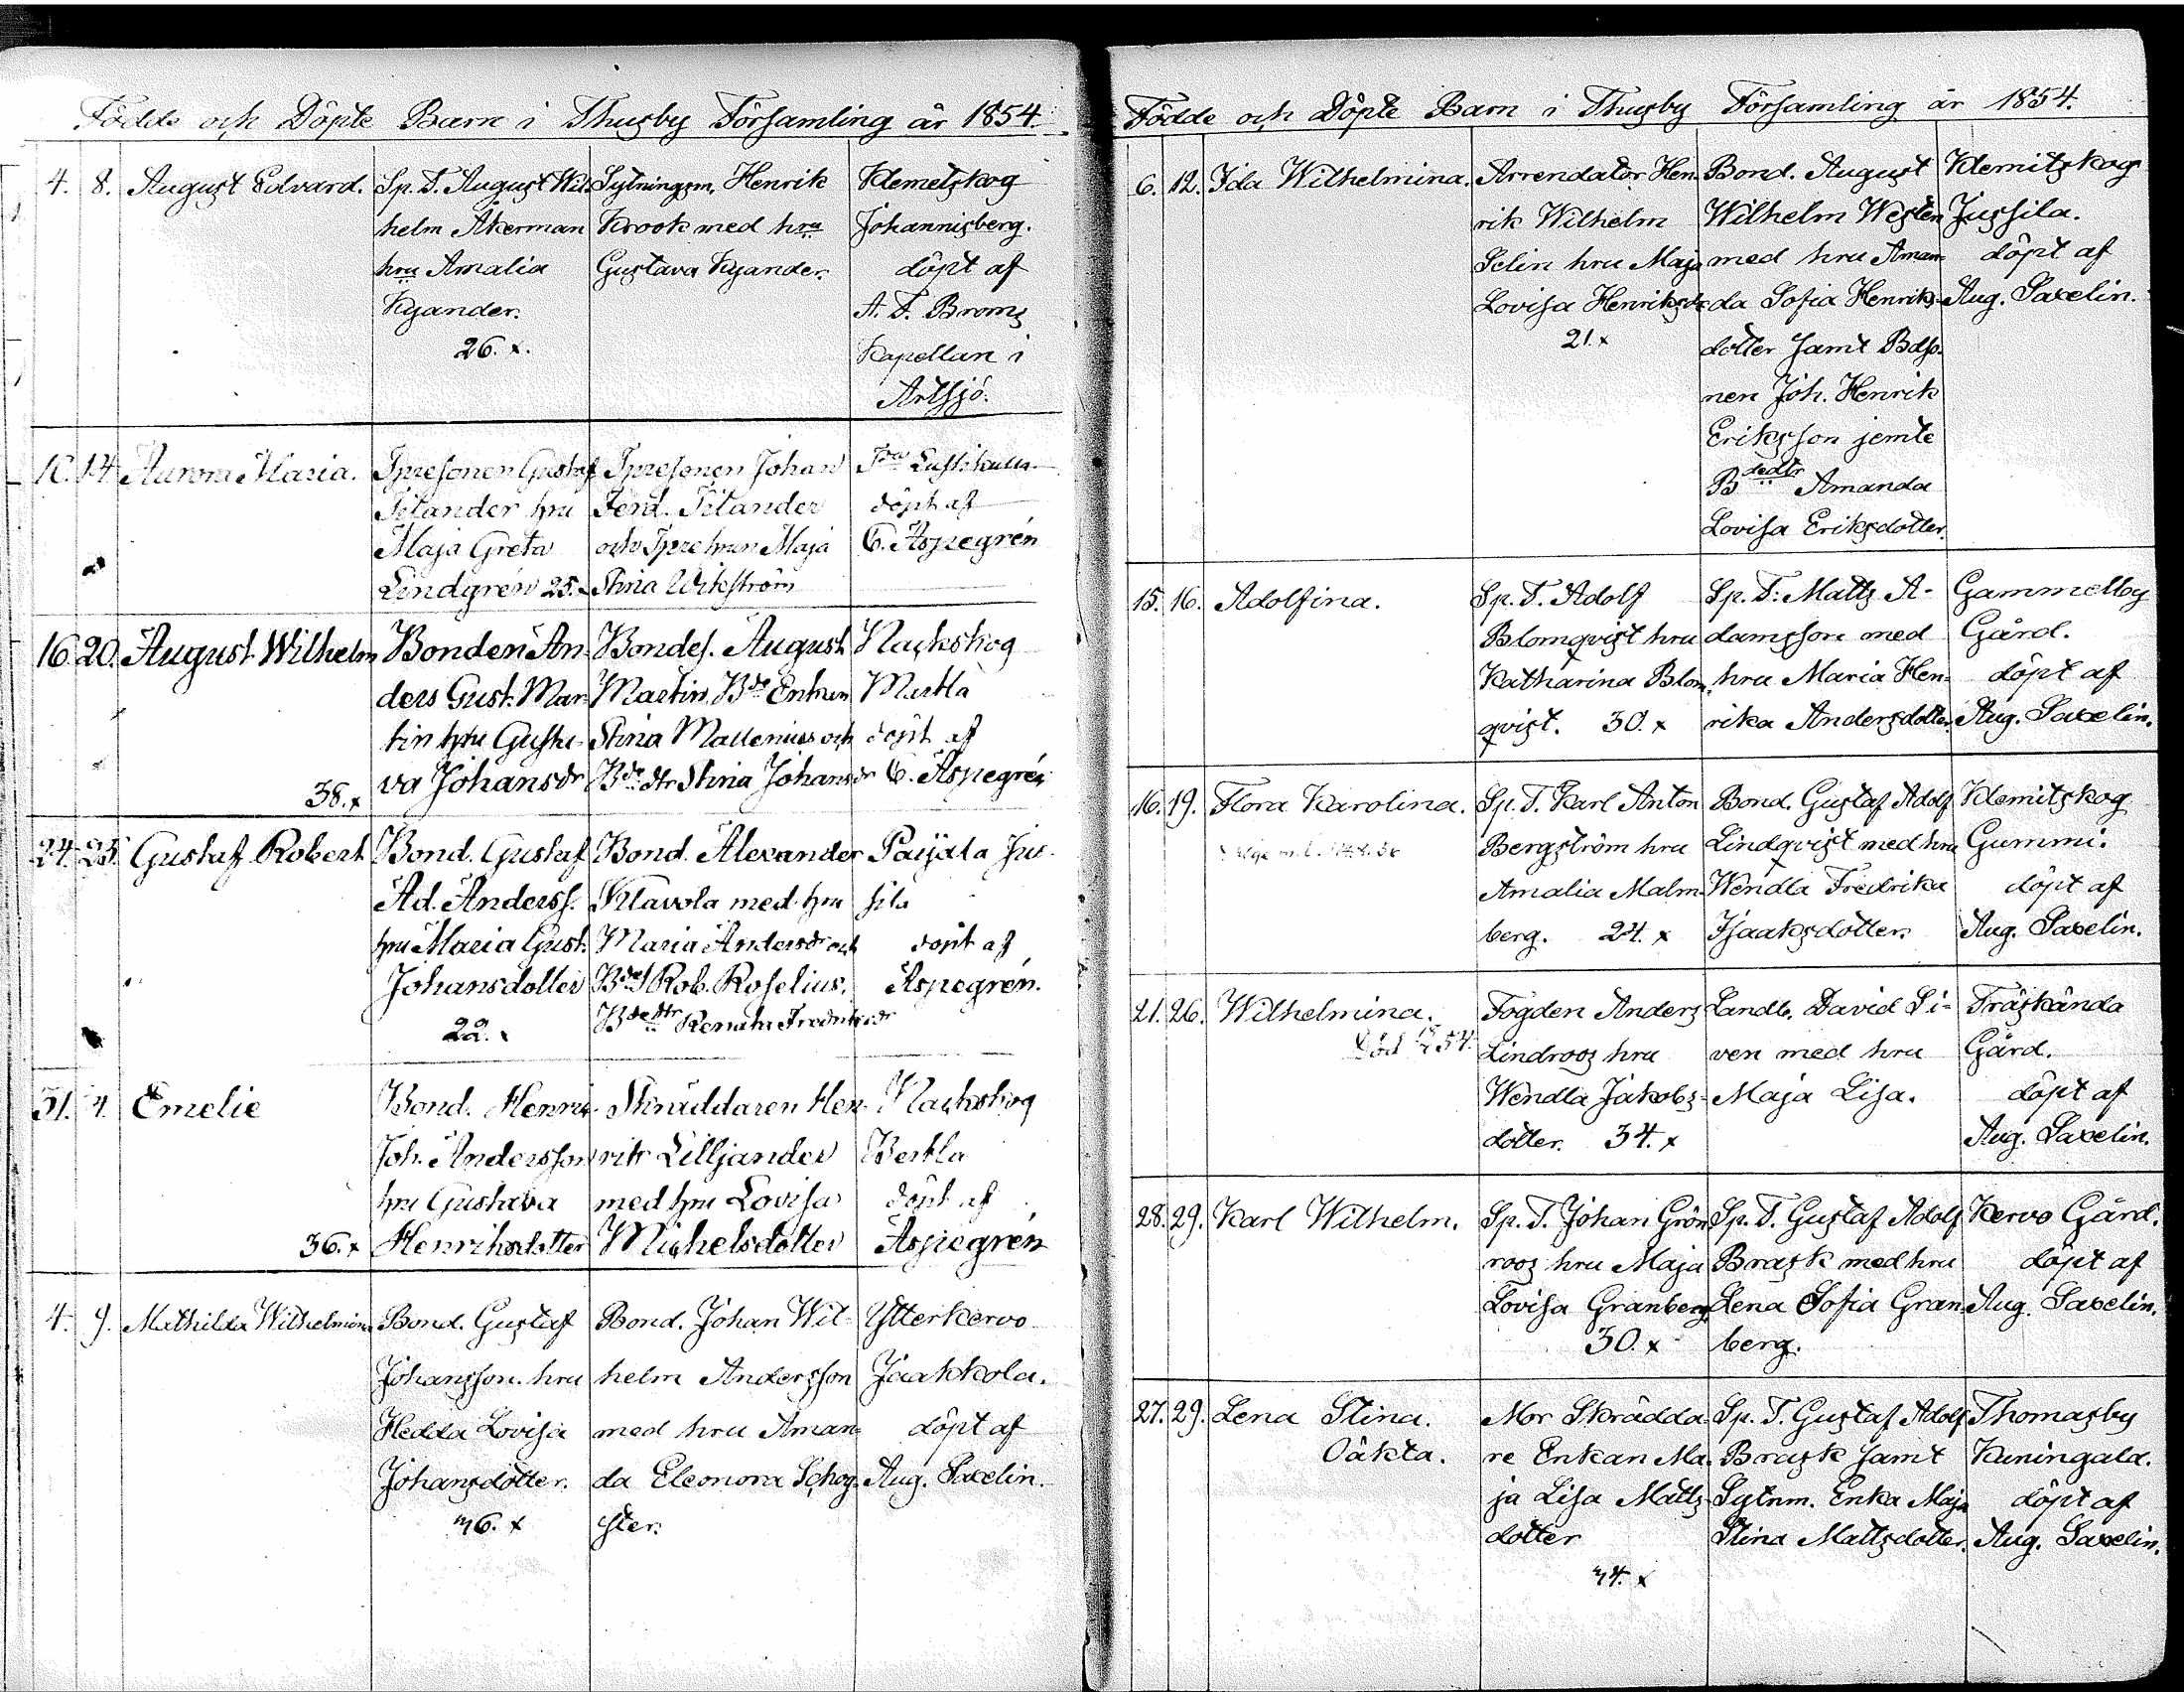 Födde och Döpte Barn i Thusby Församling år 1854.
4. 8. August Edvard.
Sp. T. August Wil-
helm Åkerman
hru Amalia
Kyander.
26. x.
Sytningsm. Henrik
Krook med hru
Gustava Kyander.
Klemetskog
Johannisberg.
döpt af
A. F. Broms
Kapellan i
Artsjö.
10. 14. Aurora Maria.
Gustaf
Titander hru
Maja Greta
Lindgrén 25. x
Johan
Ferd. Titander
och Maja
Stina Wikström
döpt af
C. Aspegrén
16. 20. August Wilhelm
38. x
Bonden An-
ders Gust. Mar-
tin hru Gusta-
va Johansdr
Bondes. August
Martin, Bde Enkan
Stina Mallenius och
Bde dtr Stina Johansdr
Nackskog
Markla
döpt af
C. Aspegrén
24. 25. Gustaf Robert
Bond. Gustaf
Ad. Anderss.
hru Maria Gust.
Johansdotter
22. x
Bond. Alexander
Klavola med hru
Maria Andersdr och
Bdes Rob. Roselius,
Bde dtr Renata Fredriksdr
Paijala Jus-
sila
döpt af
Aspegrén.
31. 4. Emelie
36. x
Bond. Henrik
Joh. Andersson
hru Gustava
Henriksdotter
Skräddaren Hen-
rik Lilljander
med hru Lovisa
Michelsdotter
Nackskog
Bertla
döpt af
Aspegrén
4. 9. Mathilda Wilhelmina
Bond. Gustaf
Johansson hru
Hedda Lovisa
Johansdotter.
36. x
Bond. Johan Wil-
helm Andersson
med hru Aman-
da Eleonora Schog-
ster.
Ytterkervo
Jaakkola.
döpt af
Aug. Saxelin.
Födde och Döpte Barn i Thusby Församling år 1854.
6. 12. Ida Wilhelmina.
Arrendator Hen-
rik Wilhelm
Selin hru Maja
Lovisa Henriksdr
21. x
Bond. August
Wilhelm Westen
med hru Aman-
da Sofia Henriks-
dotter samt Bdso-
nen Joh. Henrik
Eriksson jemte
Bdedtr Amanda
Lovisa Eriksdotter.
Klemitskog
Jussila.
döpt af
Aug. Saxelin.
15. 16. Adolfina.
Sp. T. Adolf
Blomqvist hru
Katharina Blom-
qvist. 30. x
Sp. T. Matts A-
damsson med
hru Maria Hen-
rika Andersdotter.
Gammelby
Gård.
döpt af
Aug. Saxelin.
16. 19. Flora Karolina.
Sp. T. Karl Anton
Bergström hru
Amalia Malm-
berg. 24. x
Bond. Gustaf Adolf
Lindqvist med hru
Wendla Fredrika
Isaaksdotter.
Klemitskog
Gummi.
döpt af
Aug. Saxelin.
21. 26. Wilhelmina.
Död 54.
Fogden Anders
Lindroos hru
Wendla Jakobs-
dotter. 34. x
Landb. David Si-
ven med hru
Maja Lisa.
Träskända
Gård.
döpt af
Aug. Saxelin.
28. 29. Karl Wilhelm.
Sp. T. Johan Grön-
roos hru Maja
Lovisa Granberg.
30. x
Sp. T. Gustaf Adolf
Brask med hru
Lena Sofia Gran-
berg.
Kervo Gård.
döpt af
Aug. Saxelin.
27. 29. Lena Stina.
Oäkta.
Mor Skrädda-
re Enkan Ma-
ja Lisa Matts-
dotter
34. x
Sp. T. Gustaf Adolf
Brask samt
Sytnm. Enka Maja
Stina Mattsdotter.
Thomasby
Kuningala.
döpt af
Aug. Saxelin.